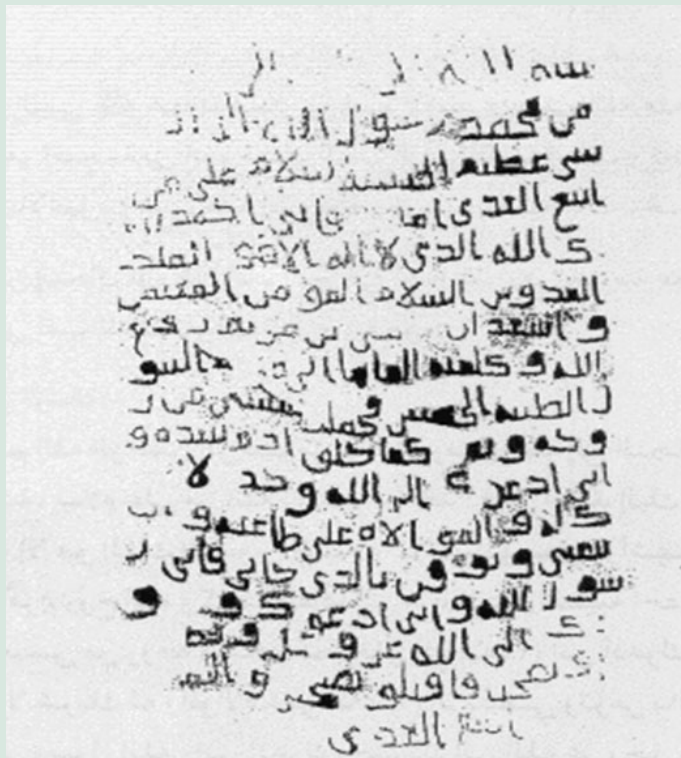 من محمد رسول الله الى النجا
شي عظيم الحبشة سلام على من
اتبع الهدى اما فاني احمد الي
ك الله الذي لا اله الا هو الملك
القدوس السلام المومن المهيمن
و اشهد ان عيسى بن مريم روح
الله و كلمته القاها الى البتو
ل الطيبه الحصينه فحملت بعيسى من ر
وحه و نفخه كما خلق ادم بيده و
اني ادعوك الى الله وحده لا
له و الموالاه على طاعته و
تتبعني و توقن بالذي جاني فاني ر
سول الله و اني ادعوك و
ك الى الله عز و جل و قد بلغت
و نصحت فاقبلو نصيحتي و السلم
اتبع الهدى